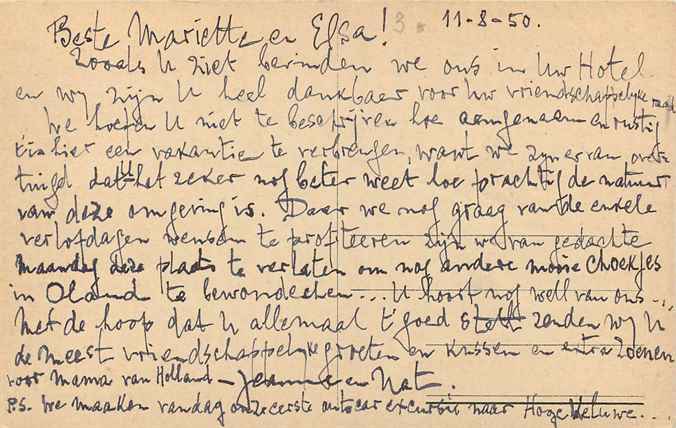 Beste Mariette en Elsa! 3. 11-8-50.
Zooals U ziet bevinden we ons in Uw Hotel
en wy zyn U heel dankbaer voor Uw vriendschappelyke raad
We hoeven U niet te beschryven hoe aengenaem en rustig
t'is hier een vakantie te verbrengen, want we zyn ervan over
tuigd dat U het zeker nog beter weet hoe prachtig de natuur
van deze omgeving is. Daar we nog graag van de enkele
verlofdagen wensen te profiteeren zyn we van gedachte
maandag deze plaats te verlaten om nog andere mooie choekjes
in Oland te bewonderen... U hoort nog well van ons...
Met de hoop dat U allemaal t'goed stelt zenden wy U
de meest vriendschappelyke groeten en kussen en extra zoenen
voor Mama van Holland - Jeanne en Nat.
P.S. We maaken vandag onze eerste autocar excursis naar Hooge Veluwe...